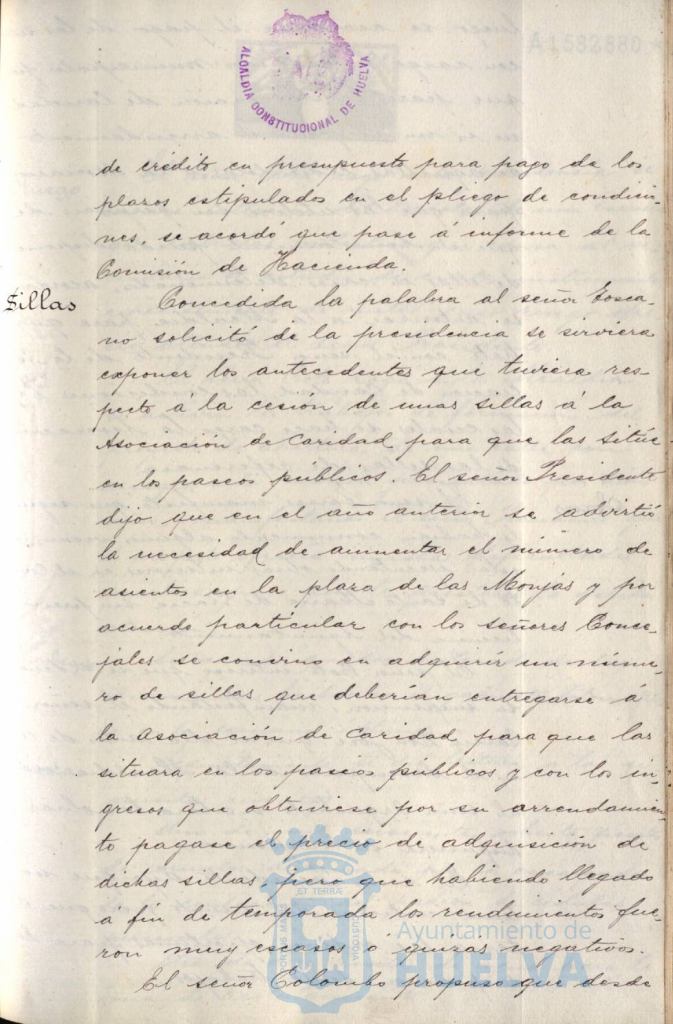 A1582880
ALCALDIA CONSTITUCIONAL DE HUELVA
de crédito en presupuesto para pago de los
plazos estipulados en el pliego de condicio-
nes, se acordó que pase á informe de la
Comisión de Hacienda.
Sillas
Concedida la palabra al señor Tosca-
no solicitó de la presidencia se sirviera
exponer los antecedentes que tuviera res-
pecto á la cesión de unas sillas á la
Asociación de Caridad para que las sitúe
en los paseos públicos. El señor Presidente
dijo que en el año anterior se advirtió
la necesidad de aumentar el número de
asientos en la plaza de las Monjas y por
acuerdo particular con los señores Conce-
jales se convino en adquirir un núme-
ro de sillas que deberían entregarse á
la Asociación de Caridad para que las
situara en los paseos públicos y con los in-
gresos que obtuviese por su arrendamien-
to pagase el precio de adquisición de
dichas sillas, pero que habiendo llegado
á fin de temporada los rendimientos fue-
ron muy escasos ó quizas negativos.
El señor Colombo propuso que desde
PORTUS MARIS ET TERRÆ CUSTODIA
Ayuntamiento de
HUELVA